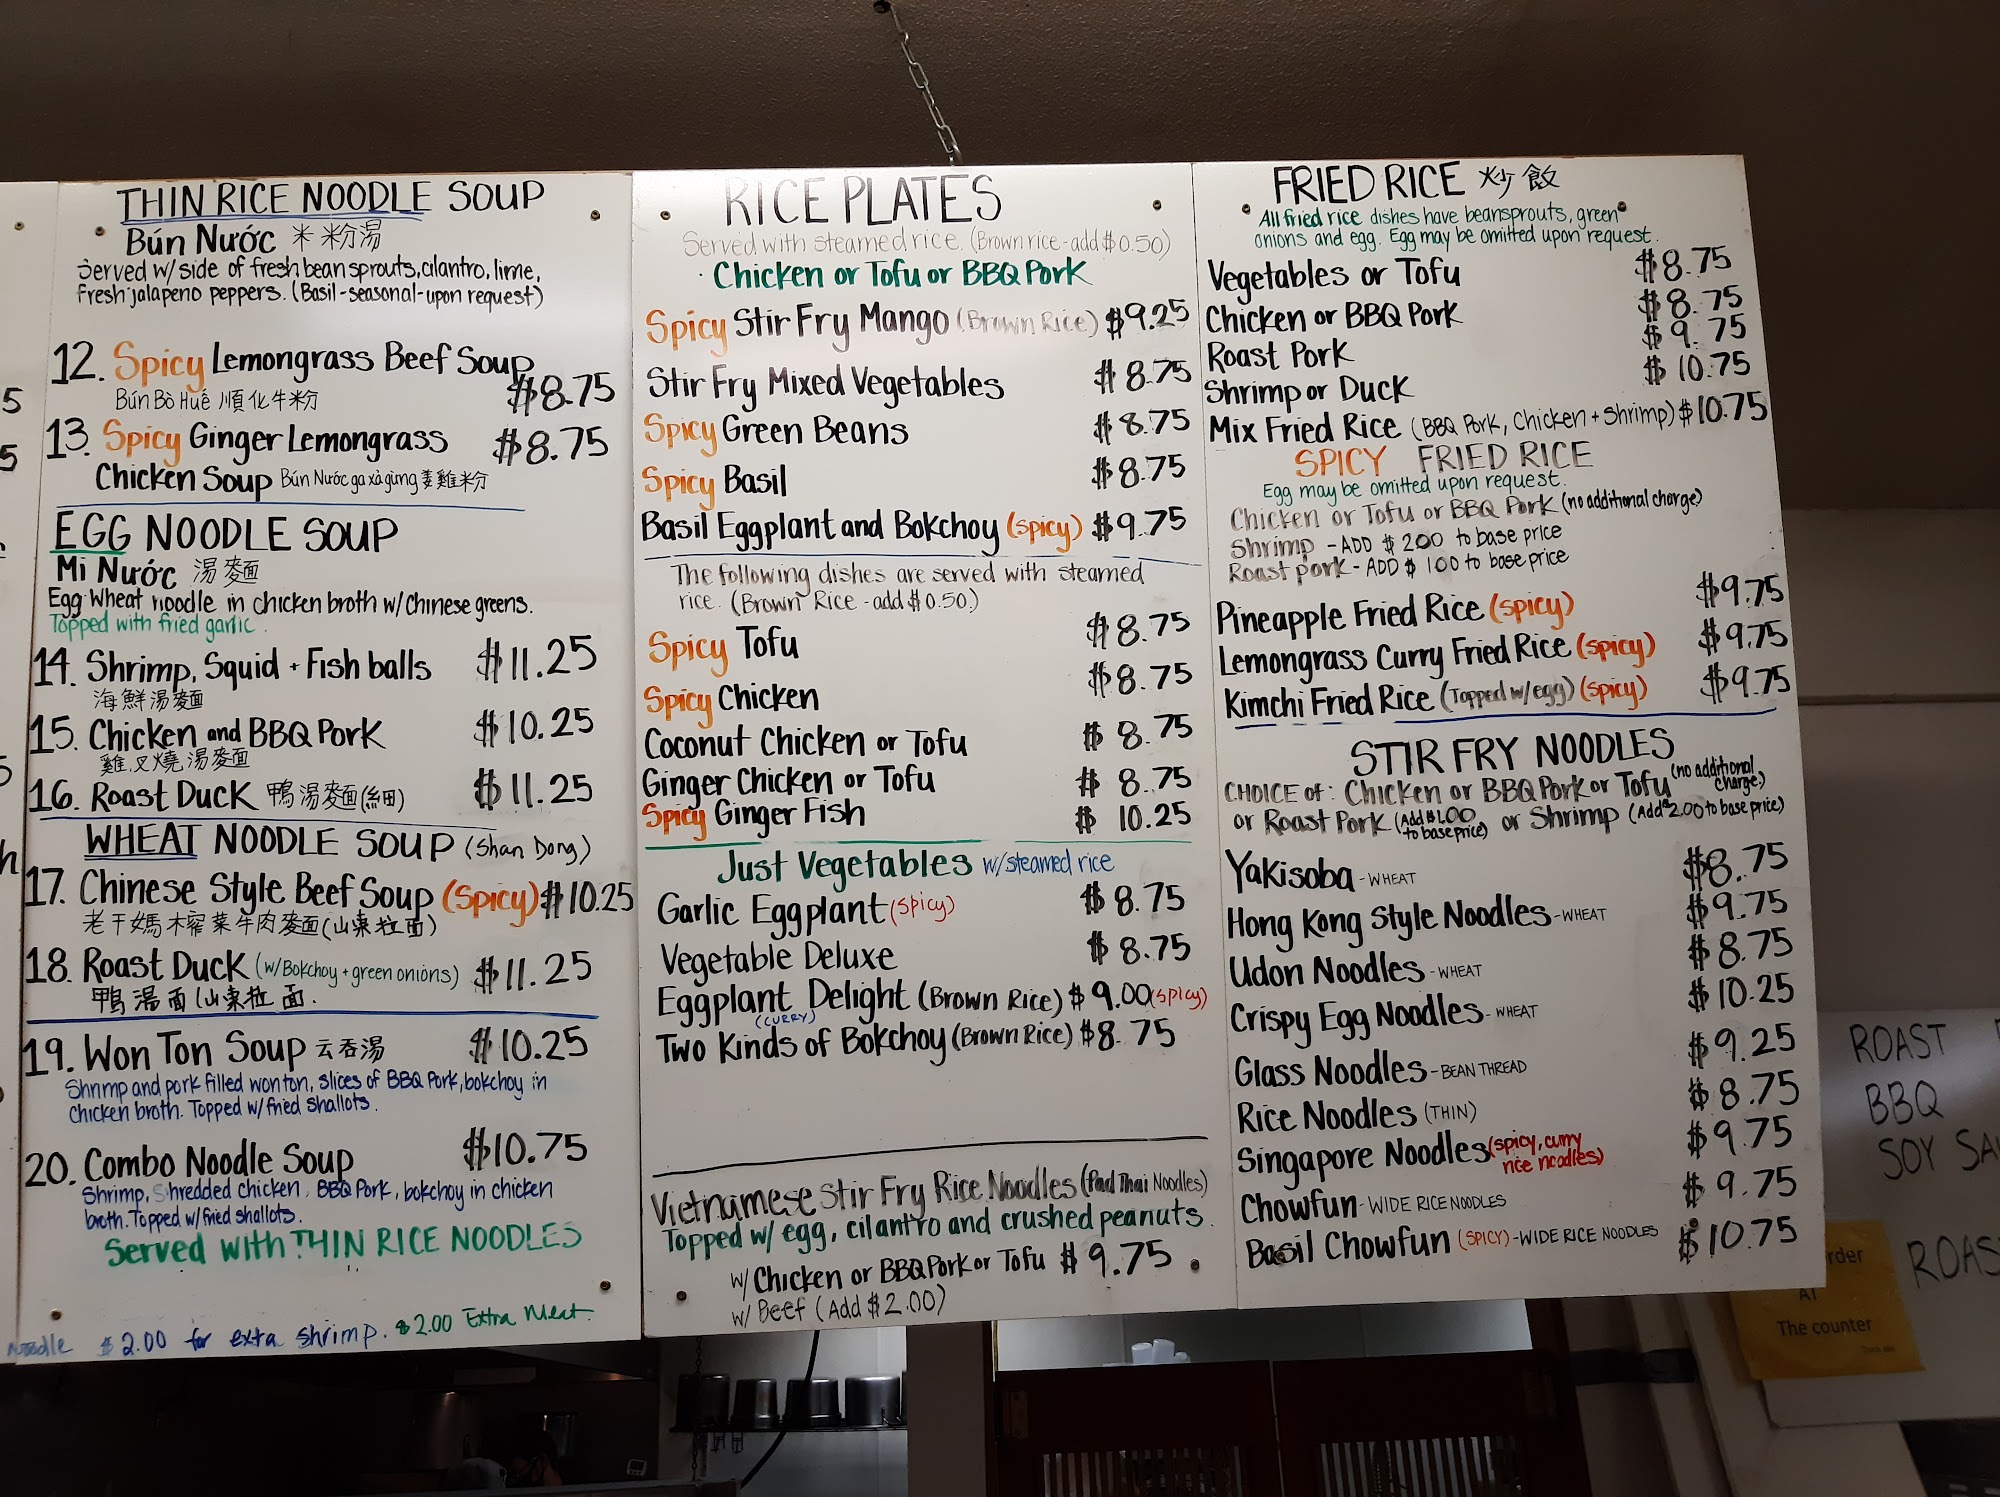 THIN RICE NOODLE SOUP
Bún Nước 米粉湯
Served w/ side of fresh bean sprouts, cilantro, lime,
fresh jalapeno peppers. (Basil-seasonal-upon request)
12. Spicy Lemongrass Beef Soup
Bún Bò Huế 順化牛粉 $8.75
13. Spicy Ginger Lemongrass $8.75
Chicken Soup Bún Nước ga xả gừng 姜雞粉
EGG NOODLE SOUP
Mì Nước 湯麵
Egg Wheat noodle in chicken broth w/ Chinese greens.
Topped with fried garlic.
14. Shrimp, Squid + Fish balls $11.25
海鮮湯麵
15. Chicken and BBQ Pork $10.25
雞,叉燒湯麵
16. Roast Duck 鴨湯麵(細) $11.25
WHEAT NOODLE SOUP (Shan Dong)
17. Chinese Style Beef Soup (Spicy) $10.25
老干媽木窂菜牛肉麵(山東拉面)
18. Roast Duck (w/Bokchoy + green onions) $11.25
鴨湯面(山東拉面.
19. Won Ton Soup 云吞湯 $10.25
Shrimp and pork filled wonton, slices of BBQ Pork, bokchoy in
chicken broth. Topped w/ fried shallots.
20. Combo Noodle Soup $10.75
Shrimp, Shredded chicken, BBQ Pork, bokchoy in chicken
broth. Topped w/ fried shallots.
Served with THIN RICE NOODLES
Noodle $2.00 for extra shrimp. $2.00 Extra Meat.
RICE PLATES
Served with steamed rice. (Brown rice-add $0.50)
· Chicken or Tofu or BBQ Pork
Spicy Stir Fry Mango (Brown Rice) $9.25
Stir Fry Mixed Vegetables $8.75
Spicy Green Beans $8.75
Spicy Basil $8.75
Basil Eggplant and Bokchoy (spicy) $9.75
The following dishes are served with steamed
rice. (Brown Rice-add $0.50)
Spicy Tofu $8.75
Spicy Chicken $8.75
Coconut Chicken or Tofu $8.75
Ginger Chicken or Tofu $8.75
Spicy Ginger Fish $10.25
Just Vegetables w/steamed rice
Garlic Eggplant (spicy) $8.75
Vegetable Deluxe $8.75
Eggplant Delight (Brown Rice) $9.00 (spicy)
(CURRY)
Two Kinds of Bokchoy (Brown Rice) $8.75
Vietnamese Stir Fry Rice Noodles (Pad Thai Noodles)
Topped w/ egg, cilantro and crushed peanuts.
w/ Chicken or BBQ Pork or Tofu $9.75
w/ Beef (Add $2.00)
FRIED RICE 炒飯
All fried rice dishes have beansprouts, green
onions and egg. Egg may be omitted upon request.
Vegetables or Tofu $8.75
Chicken or BBQ Pork $8.75
Roast Pork $9.75
Shrimp or Duck $10.75
Mix Fried Rice (BBQ Pork, Chicken + Shrimp) $10.75
SPICY FRIED RICE
Egg may be omitted upon request.
Chicken or Tofu or BBQ Pork (no additional charge)
Shrimp - ADD $2.00 to base price
Roast pork - ADD $1.00 to base price
Pineapple Fried Rice (spicy) $9.75
Lemongrass Curry Fried Rice (spicy) $9.75
Kimchi Fried Rice (Topped w/egg) (spicy) $9.75
STIR FRY NOODLES
CHOICE of: Chicken or BBQ Pork or Tofu (no additional charge)
or Roast Pork (Add $1.00 to base price) or Shrimp (Add $2.00 to base price)
Yakisoba - WHEAT $8.75
Hong Kong Style Noodles - WHEAT $9.75
Udon Noodles - WHEAT $8.75
Crispy Egg Noodles - WHEAT $10.25
Glass Noodles - BEAN THREAD $9.25
Rice Noodles (THIN) $8.75
Singapore Noodles (spicy, curry rice noodles) $9.75
Chowfun - WIDE RICE NOODLES $9.75
Basil Chowfun (SPICY) - WIDE RICE NOODLES $10.75
ROAST
BBQ
SOY SA
ROAS
rder
AT
The counter